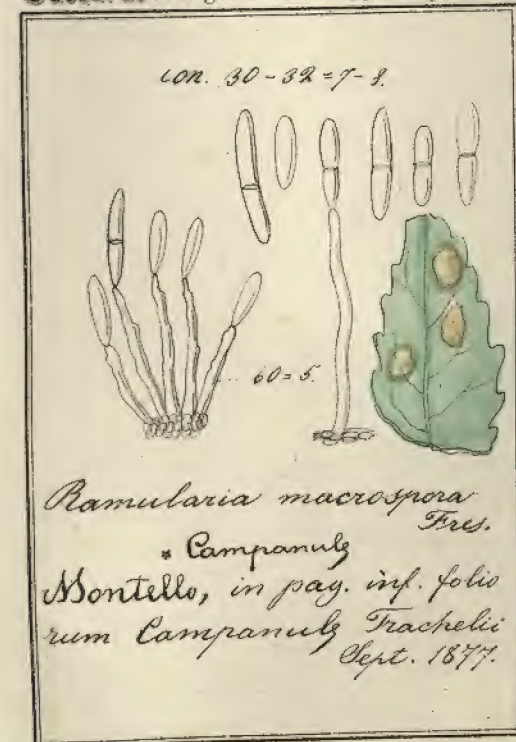 con. 30-32=7-8.
60=5.
Ramularia macrospora
Fres.
* Campanulę
Montello, in pag. inf. folio
rum Campanulę Trachelii
Sept. 1877.